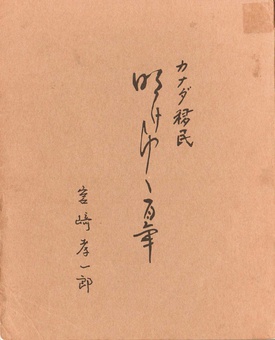 カナダ移民
明けゆく百年
宮崎孝一郎